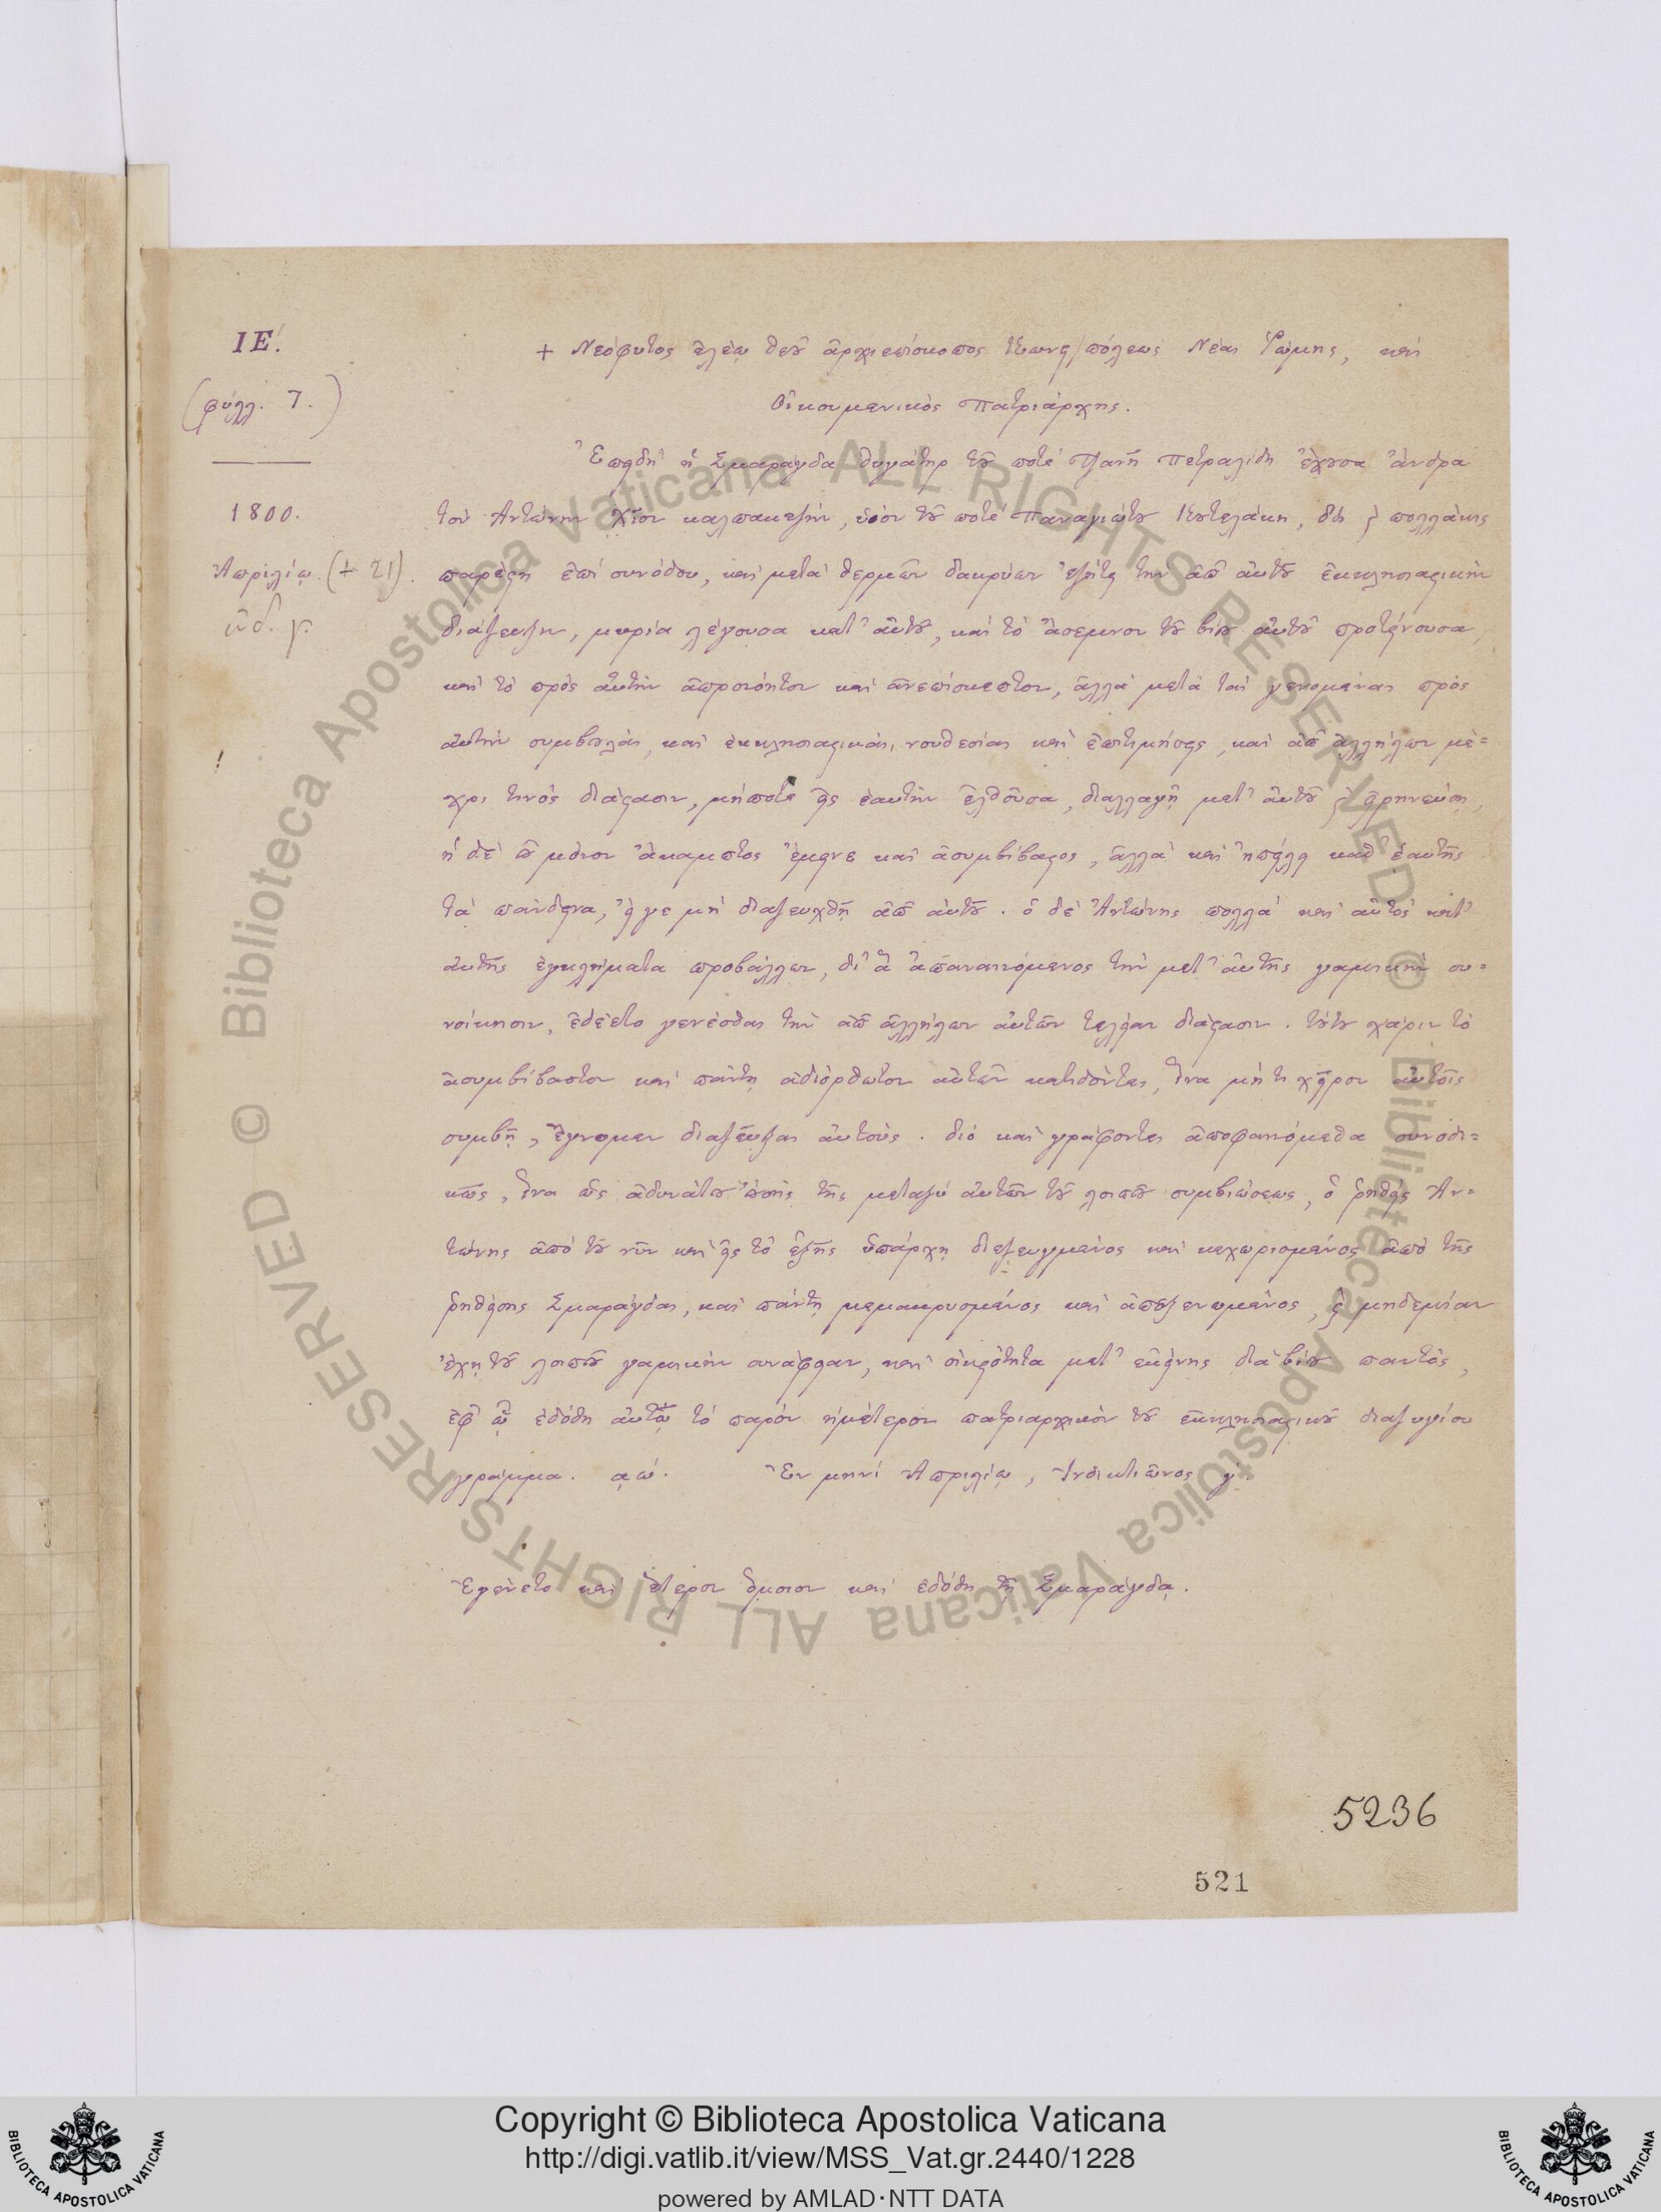 ΙΕ΄.
(φύλλ. 7.)
1800.
Ἀπριλίῳ (+ 21).
ἰνδ. γ.
+ Νεόφυτος ἐλέῳ θεοῦ ἀρχιεπίσκοπος Κωνς/πόλεως Νέας Ῥώμης, καὶ
Οἰκουμενικὸς Πατριάρχης.
Ἐπειδὴ ἡ Σμαράγδα θυγάτηρ τοῦ ποτὲ Τζανῆ Πετραλίδη ἔχουσα ἄνδρα
τὸν Ἀντώνην Χῖον καλπακτζῆν, υἱὸν τοῦ ποτὲ Παναγιώτου Κουτελάκη, δὶς καὶ πολλάκις
παρέστη ἐπὶ συνόδου, καὶ μετὰ θερμῶν δακρύων ἐζήτει τὴν ἀπ' αὐτοῦ ἐκκλησιαστικὴν
διάζευξιν, μυρία λέγουσα κατ' αὐτοῦ, καὶ τὸ ἄσεμνον τοῦ βίου αὐτοῦ προτείνουσα,
καὶ τὸ πρὸς αὐτὴν ἀπρονόητον καὶ ἀνεπίσκεπτον, ἀλλὰ μετὰ τὰς γενομένας πρὸς
αὐτὴν συμβουλὰς, καὶ ἐκκλησιαστικὰς νουθεσίας καὶ ἐπιτιμήσεις, καὶ ἀπ' ἀλλήλων μέ=
χρι τινὸς διάστασιν, μήποτε εἰς ἑαυτὴν ἐλθοῦσα, διαλλαγῇ μετ' αὐτοῦ καὶ εἰρηνεύσῃ,
ἡ δὲ οὐ μόνον ἄκαμπτος ἔμεινε καὶ ἀσυμβίβαστος, ἀλλὰ καὶ ἠπείλει καθ' ἑαυτῆς
τὰ πάνδεινα, εἴγε μὴ διαζευχθῇ ἀπ' αὐτοῦ. ὁ δὲ Ἀντώνης πολλὰ καὶ αὐτὸς κατ'
αὐτῆς ἐγκλήματα προβάλλων, δι' ἃ ἀπαναινόμενος τὴν μετ' αὐτῆς γαμικὴν συ=
νοίκησιν, ἐδέετο γενέσθαι τὴν ἀπ' ἀλλήλων αὐτῶν τελείαν διάστασιν. τούτου χάριν τὸ
ἀσυμβίβαστον καὶ πάντῃ ἀδιόρθωτον αὐτῶν κατιδόντες, ἵνα μή τι χεῖρον αὐτοῖς
συμβῇ, ἔγνωμεν διαζεῦξαι αὐτούς. διὸ καὶ γράφοντες ἀποφαινόμεθα συνοδι=
κῶς, ἵνα ὡς ἀδυνάτου οὔσης τῆς μεταξὺ αὐτῶν τοῦ λοιποῦ συμβιώσεως, ὁ ῥηθεὶς Ἀν=
τώνης ἀπὸ τοῦ νῦν καὶ εἰς τὸ ἑξῆς ὑπάρχῃ διεζευγμένος καὶ κεχωρισμένος ἀπὸ τῆς
ῥηθείσης Σμαράγδας, καὶ πάντῃ μεμακρυσμένος καὶ ἀπεξενωμένος, καὶ μηδεμίαν
ἔχῃ τοῦ λοιποῦ γαμικὴν συνάφειαν, καὶ οἰκειότητα μετ' ἐκείνης διὰ βίου παντός,
ἐφ' ᾧ ἐδόθη αὐτῷ τὸ παρὸν ἡμέτερον πατριαρχικὸν τοῦ ἐκκλησιαστικοῦ διαζυγίου
γράμμα. ͵αώ. Ἐν μηνὶ Ἀπριλίῳ, Ἰνδικτιῶνος γ΄.
Ἐγένετο καὶ ἕτερον ὅμοιον καὶ ἐδόθη τῇ Σμαράγδᾳ.
5236
521
© Biblioteca Apostolica Vaticana ALL RIGHTS RESERVED © Biblioteca Apostolica Vaticana ALL RIGHTS RESERVED
Copyright © Biblioteca Apostolica Vaticana
http://digi.vatlib.it/view/MSS_Vat.gr.2440/1228
powered by AMLAD·NTT DATA
BIBLIOTECA APOSTOLICA VATICANA
BIBLIOTECA APOSTOLICA VATICANA